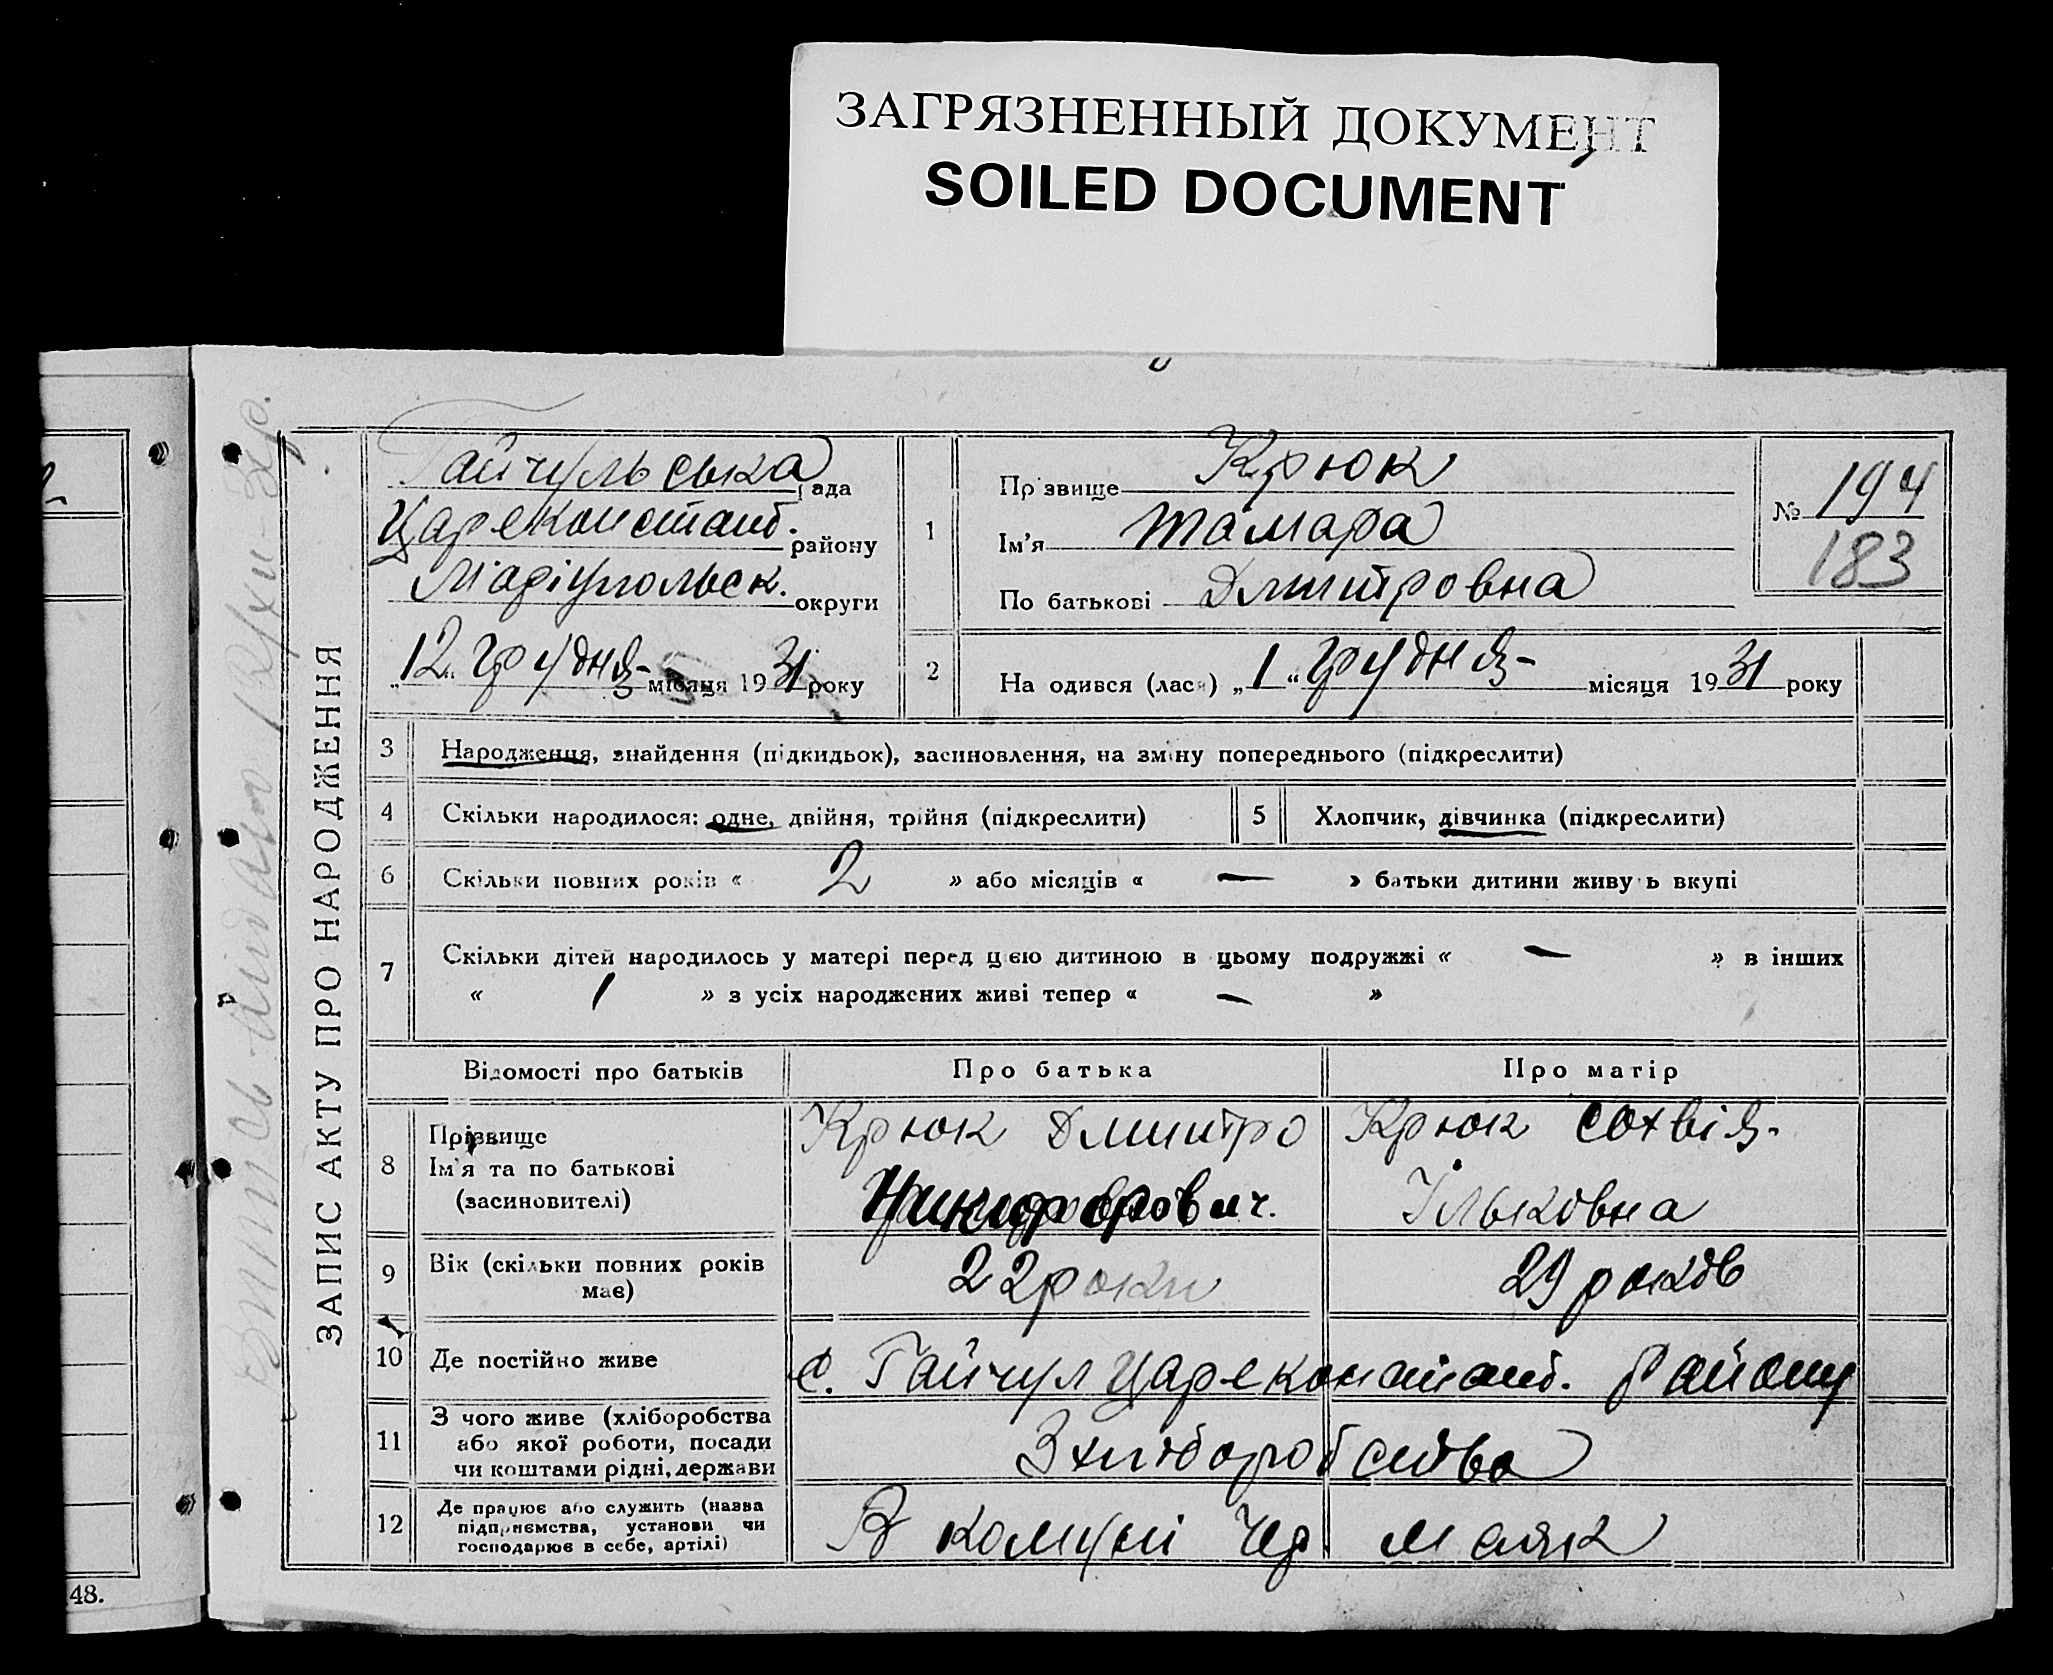 ЗАГРЯЗНЕННЫЙ ДОКУМЕНТ
SOILED DOCUMENT
ЗАПИС АКТУ ПРО НАРОДЖЕННЯ
Гайчульська рада
Цареконстант. району
Маріупольськ. округи
„12“ грудня- місяця 1931 року
1
Прізвище Крюк
Ім'я Тамара
По батькові Дмитровна
№ 194
183
2
На одився (лася) „1“ грудня- місяця 1931 року
3 Народження, знайдення (підкидьок), засиновлення, на зміну попереднього (підкреслити)
4 Скільки народилося: одне, двійня, трійня (підкреслити)
5 Хлопчик, дівчинка (підкреслити)
6 Скільки повних років « 2 » або місяців « — » батьки дитини живуть вкупі
7 Скільки дітей народилось у матері перед цією дитиною в цьому подружжі « — » в інших
« 1 » з усіх народжених живі тепер « — »
Відомості про батьків
Про батька
Про матір
8
Прізвище
Ім'я та по батькові
(засиновителі)
Крюк Дмитро
Никифорович.
Крюк Сохвія-
Ільковна
9
Вік (скільки повних років
має)
22 роки
29 років
10 Де постійно живе
с. Гайчул Цареконстант. Району
11
З чого живе (хліборобства
або якої роботи, посади
чи коштами рідні, держави
З хліборобства
12
Де працює або служить (назва
підприємства, установи чи
господарює в себе, артілі)
В комуні Чер маяк
48.